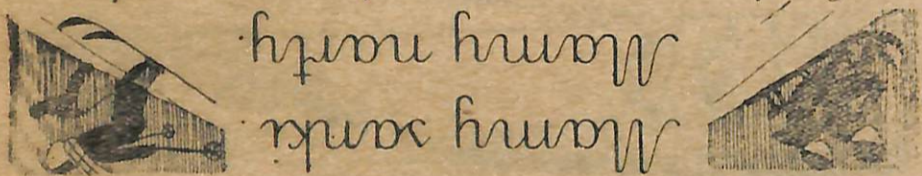 Mamy sanki.
Mamy narty.